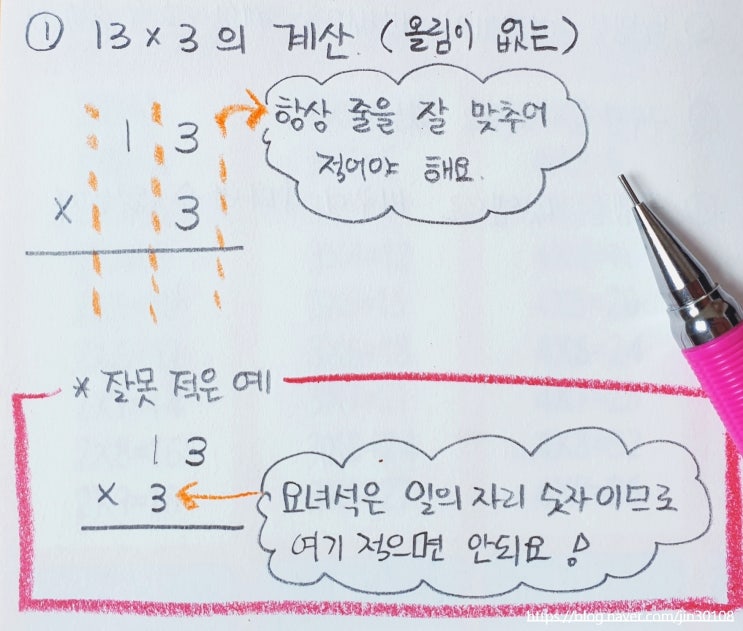 ① 13 × 3 의 계산. (올림이 없는)
항상 줄을 잘 맞추어
적어야 해요.
1 3
× 3
* 잘못 적은 예
1 3
× 3
요녀석은 일의 자리 숫자이므로
여기 적으면 안되요!
https://blog.naver.com/jin30108